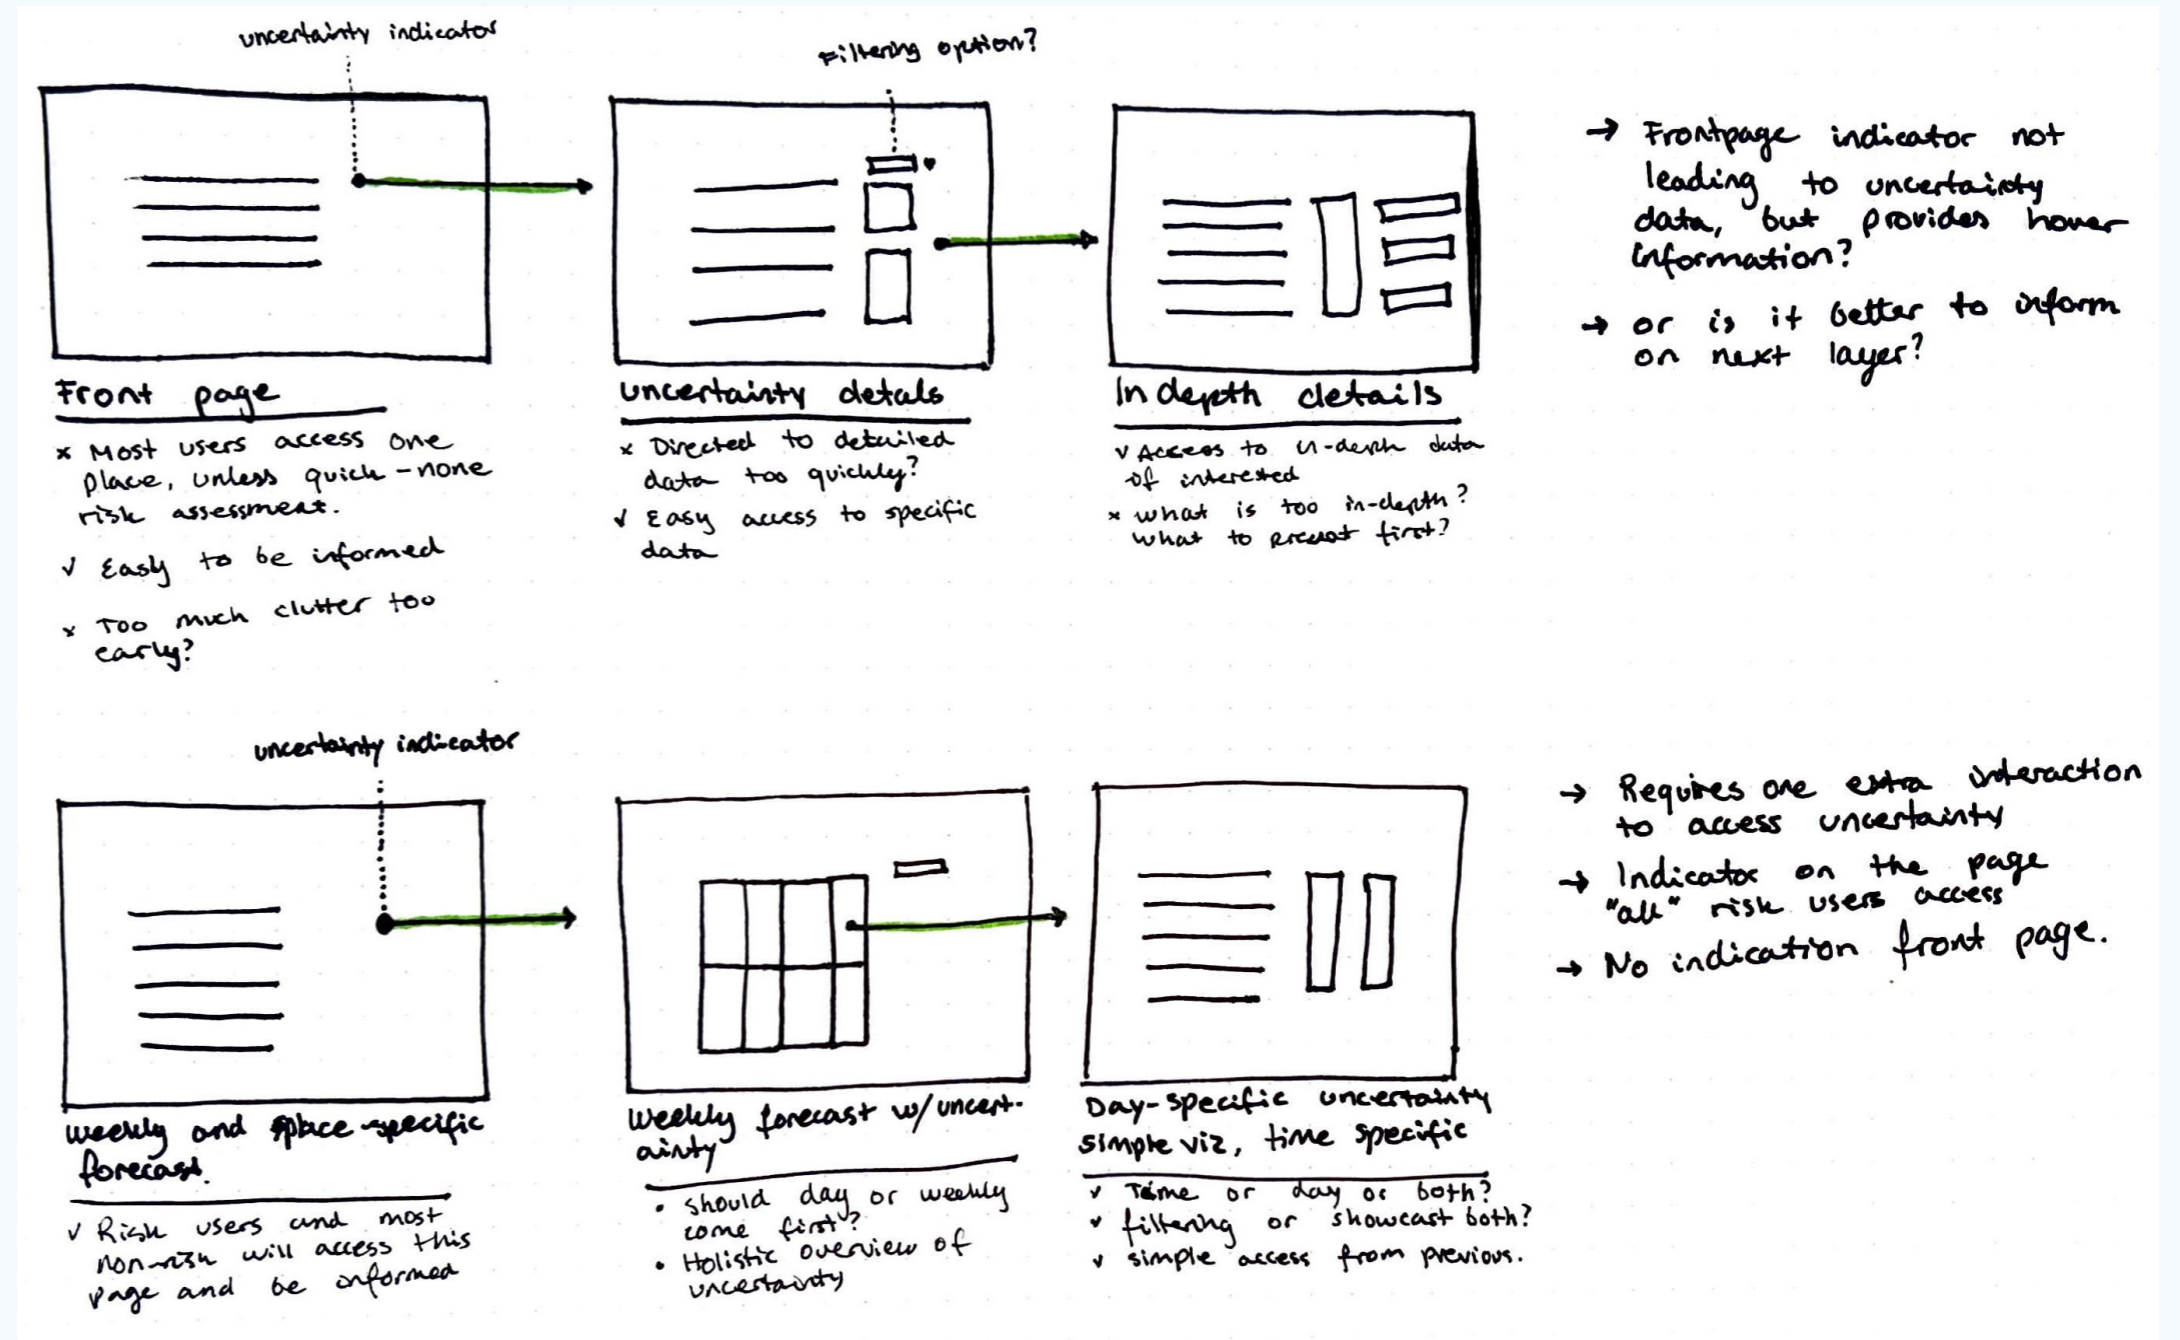 uncertainty indicator
Filtering option?
Front page
x Most users access one
place, unless quick-none
risk assessment.
√ Easly to be informed
x Too much clutter too
early?
uncertainty detals
x Directed to detailed
data too quickly?
√ Easy access to specific
data
In depth details
√ Access to in-depth data
of interested
x what is too in-depth?
what to present first?
→ Frontpage indicator not
leading to uncertainty
data, but provides hover
information?
→ or is it better to inform
on next layer?
uncertainty indicator
weekly and place-specific
forecast.
√ Risk users and most
non-risk will access this
page and be informed
weekly forecast w/uncert-
ainty
• should day or weekly
come first?
• Holistic overview of
uncertainty
Day-specific uncertainty
simple viz, time specific
√ Time or day or both?
√ filtering or showcast both?
√ simple access from previous.
→ Requires one extra interaction
to access uncertainty
→ Indicator on the page
"all" risk users access
→ No indication front page.